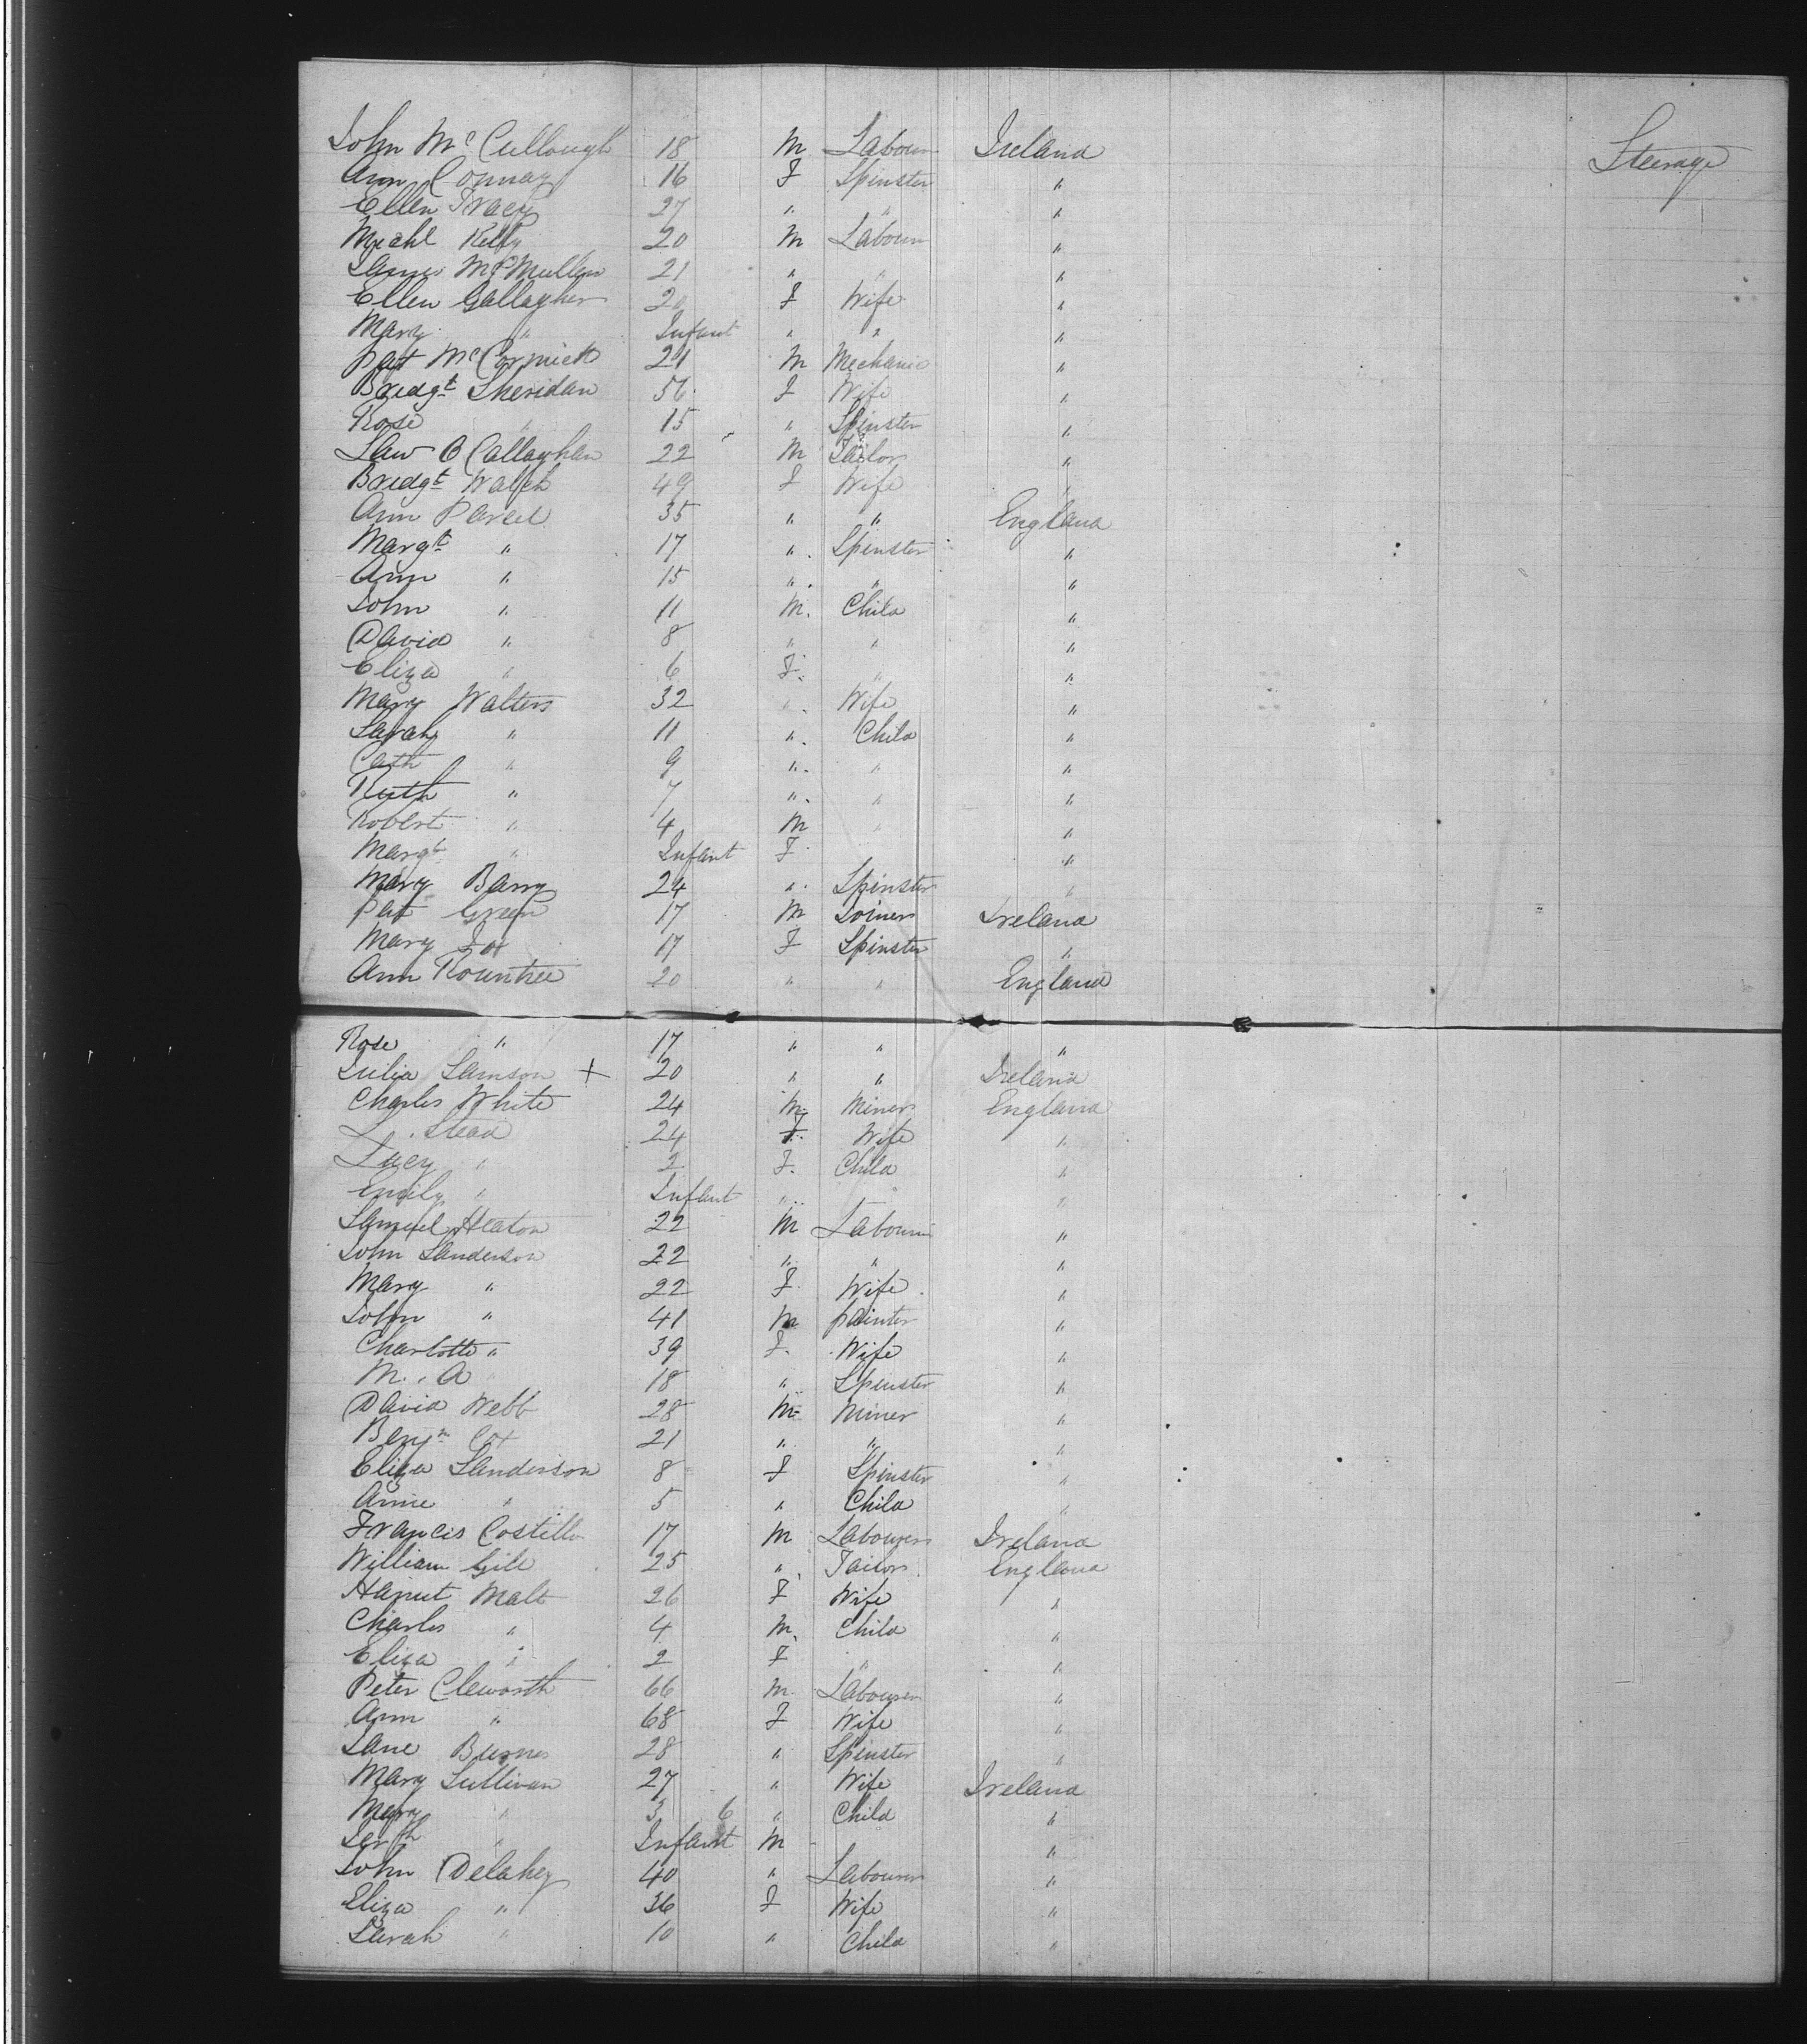 John McCullough 18 M Labourer Ireland Steerage
Ann Conway 16 F Spinster "
Ellen Tracy 27 " " "
Michl Kelly 20 M Labourer "
James McMullen 21 " " "
Ellen Gallagher 20 F Wife "
Mary " Infant " " "
Pat McCormick 21 M Mechanic "
Bridgt Sheridan 56 F Wife "
Rose " 15 " Spinster "
Law O Callaghan 22 M Tailor "
Bridgt Walsh 49 F Wife "
Ann Parcel 35 " " England
Margt " 17 " Spinster "
Ann " 15 " " "
John " 11 M. Child "
David " 8 " " "
Eliza " 6 F. " "
Mary Walters 32 " Wife "
Sarah " 11 " Child "
Cath " 9 " " "
Ruth " 7 " " "
Robert " 4 M " "
Margt " Infant F "
Mary Barry 24 " Spinster "
Pat Green 17 M Joiner Ireland
Mary Fox 17 F Spinster "
Ann Rountree 20 " " England
Rose " 17 " " "
Julia Samson + 20 " " Ireland
Charles White 24 M. Miner England
L. Stead 24 F. Wife "
Lucy " 2 F. Child "
Emily " Infant " "
Samuel Heaton 22 M Labourer "
John Sanderson 22 " " "
Mary " 22 F. Wife "
John " 41 M Painter "
Charlotte " 39 F. Wife "
M. A " 18 " Spinster "
David Webb 28 M Miner "
Benjn Cox 21 " " "
Eliza Sanderson 8 F Spinster "
Annie " 5 " Child "
Francis Costello 17 M Labourer Ireland
William Gill 25 " Tailor England
Malt 26 F Wife "
Charles " 4 M. Child "
Eliza " 2 F " "
Peter Cleworth 66 M. Labourer "
Ann " 68 F Wife "
Jane Burnes 28 " Spinster "
Mary Sullivan 27 " Wife Ireland
Mary " 3 6 " Child "
" Infant M "
John Delahey 40 " Labourer "
Eliza " 36 F Wife "
Sarah " 10 " Child "